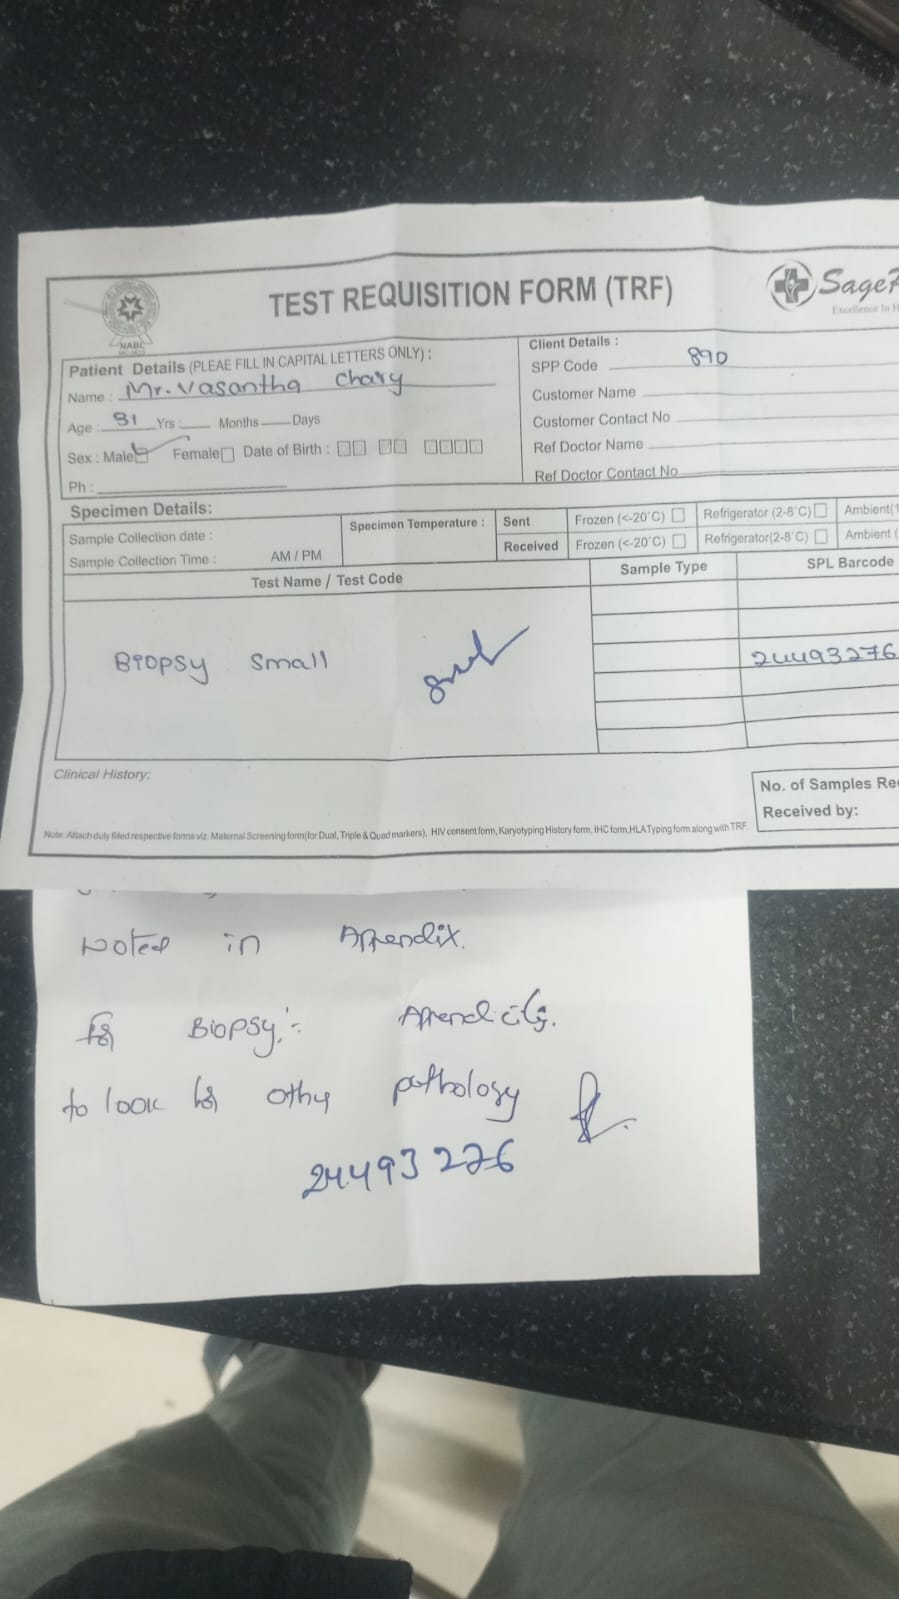 NABL
TEST REQUISITION FORM (TRF)
Sage
Excellence In H
Patient Details (PLEAE FILL IN CAPITAL LETTERS ONLY) :
Name : Mr. Vasantha Chary
Age : 31 Yrs : Months Days
Sex : Male Female Date of Birth :
Ph :
Client Details :
SPP Code 890
Customer Name
Customer Contact No
Ref Doctor Name
Ref Doctor Contact No
Specimen Details:
Sample Collection date :
Sample Collection Time : AM / PM
Specimen Temperature : Sent Frozen (<-20°C) Refrigerator (2-8°C) Ambient(
Received Frozen (<-20°C) Refrigerator(2-8°C) Ambient (
Test Name / Test Code Sample Type SPL Barcode
Biopsy small
24493276
Clinical History:
No. of Samples Re
Received by:
Note: Attach duly filled respective forms viz. Maternal Screening form(for Dual, Triple & Quad markers), HIV consent form, Karyotyping History form, IHC form,HLA Typing form along with TRF.
Noted in Appendix.
for Biopsy:-
to look for other pathology
24493276